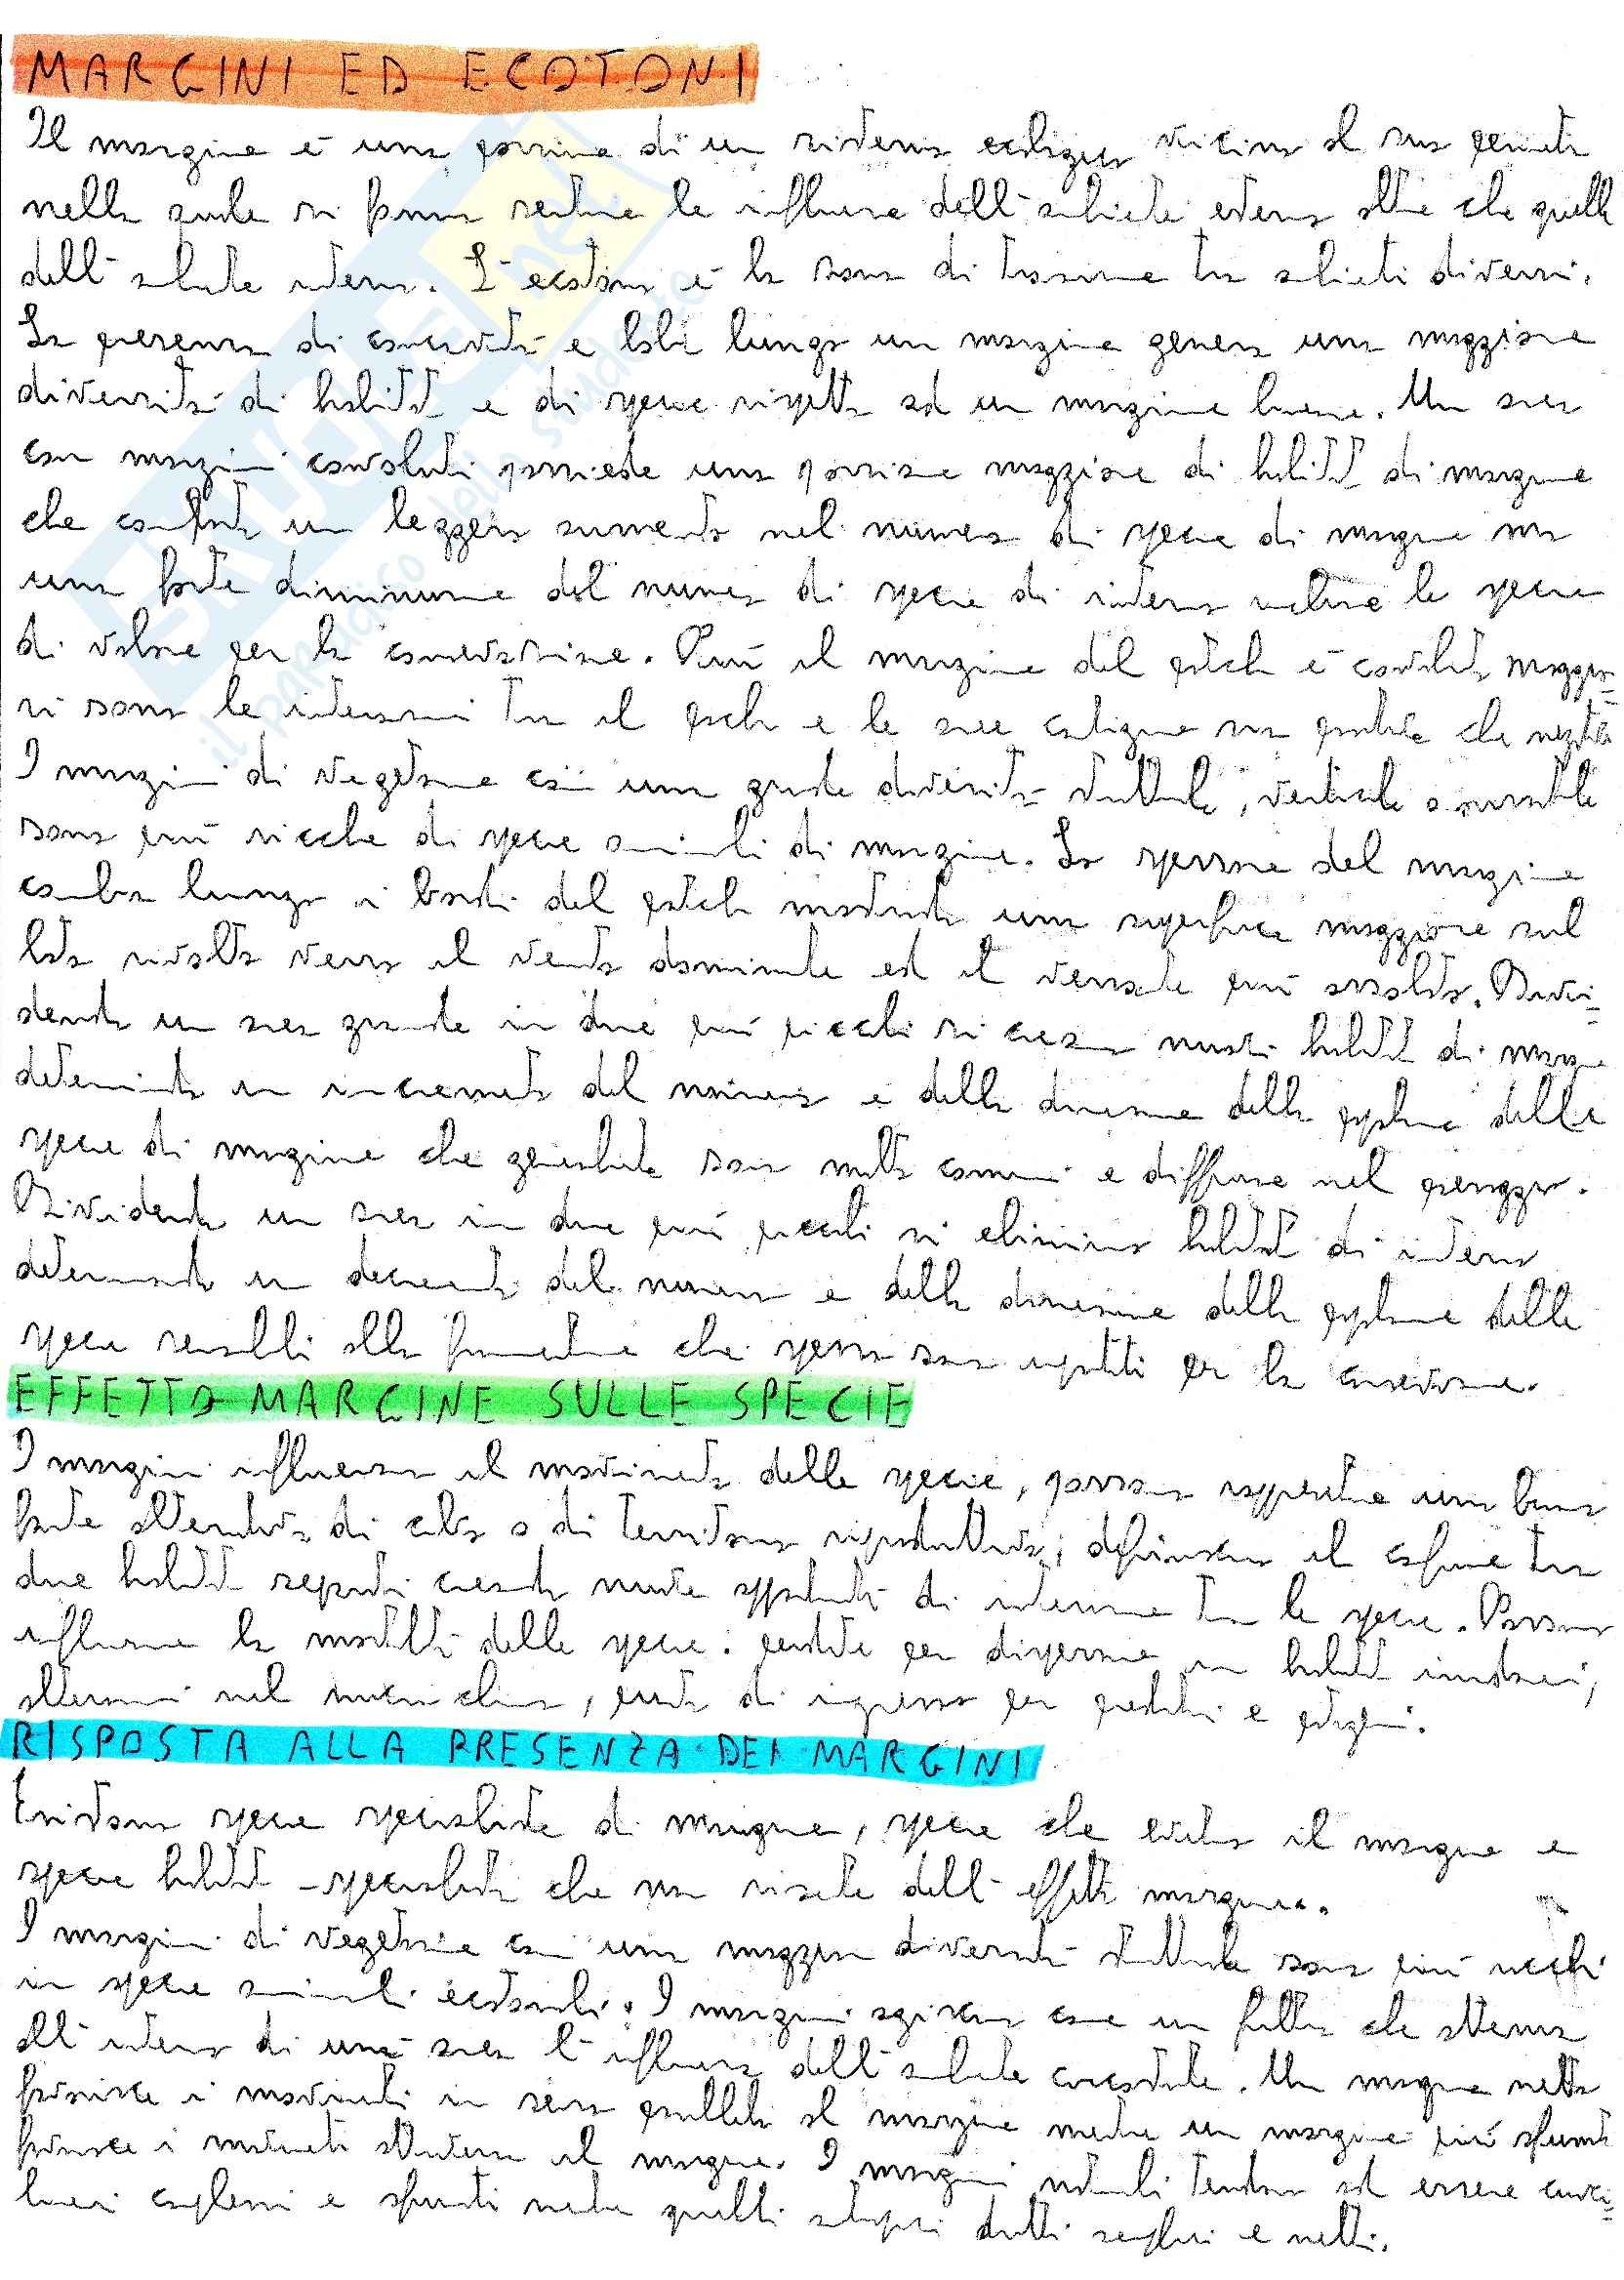 MARGINI ED ECOTONI
Il margine è una porzione di un sistema ecologico vicino al suo perimetro
nella quale si fanno sentire le influenze dell'ambiente esterno oltre che quelle
dell'ambiente interno. L'ecotono è la zona di transizione tra ambienti diversi.
La presenza di concavità e lobi lungo un margine genera una maggiore
diversità di habitat e di specie rispetto ad un margine lineare. Un area
con margini convoluti possiede una porzione maggiore di habitat di margine
che comporta un leggero aumento nel numero di specie di margine ma
una forte diminuzione del numero di specie di interno le specie
di valore per la conservazione. Più il margine del patch è convoluto maggio=
ri sono le interazioni tra il patch e le aree contigue sia positive che negative
I margini di vegetazione con una grande diversità strutturale, verticale o orizzontale
sono più ricche di specie animali di margine. Lo spessore del margine
cambia lungo i bordi del patch mostrando una superficie maggiore sul
lato rivolto verso il vento dominante ed il versante più assolato. Divi=
dendo un area grande in due più piccoli si creano nuovi habitat di margine
determinando un incremento del numero e della dimensione della popolazione delle
specie di margine che generalmente sono molto comuni e diffuse nel paesaggio.
Dividendo un area in due più piccoli si elimina habitat di interno
determinando un decremento del numero e della dimensione della popolazione delle
specie sensibili alla frammentazione che spesso sono importanti per la conservazione.
EFFETTO MARGINE SULLE SPECIE
I margini influenzano il movimento delle specie, possono rappresentare una buona
fonte alternativa di cibo o di territorio riproduttivo, definiscono il confine tra
due habitat separati creando nuove opportunità di interazione tra le specie. Possono
influenzare la mortalità delle specie: perdite per dispersione in habitat inidonei,
alterazioni nel microclima, punto di ingresso per predatori e patogeni.
RISPOSTA ALLA PRESENZA DEI MARGINI
Esistono specie specialiste di margine, specie che evitano il margine e
specie habitat-specialiste che non risentono dell'effetto margine.
I margini di vegetazione con una maggiore diversità strutturale sono più ricchi
in specie animali ecotonali. I margini agiscono come un filtro che attenua
all'interno di una area l'influenza dell'ambiente circostante. Un margine netto
favorisce i movimenti in senso parallelo al margine mentre un margine più sfumato
favorisce i movimenti attraverso il margine. I margini naturali tendono ad essere curvi=
linei complessi e sfumati mentre quelli antropici dritti semplici e netti.